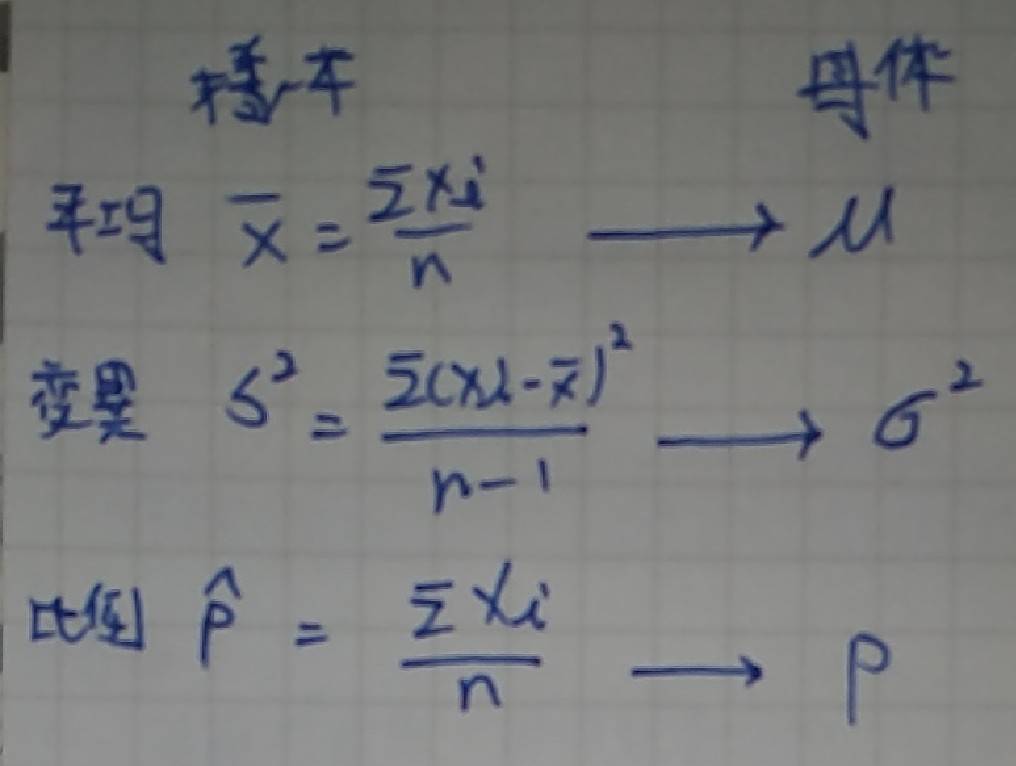 樣本 母体
平均 x̄ = Σxi/n → μ
変異 S² = Σ(xi-x̄)²/n-1 → σ²
比例 p̂ = ΣXi/n → p